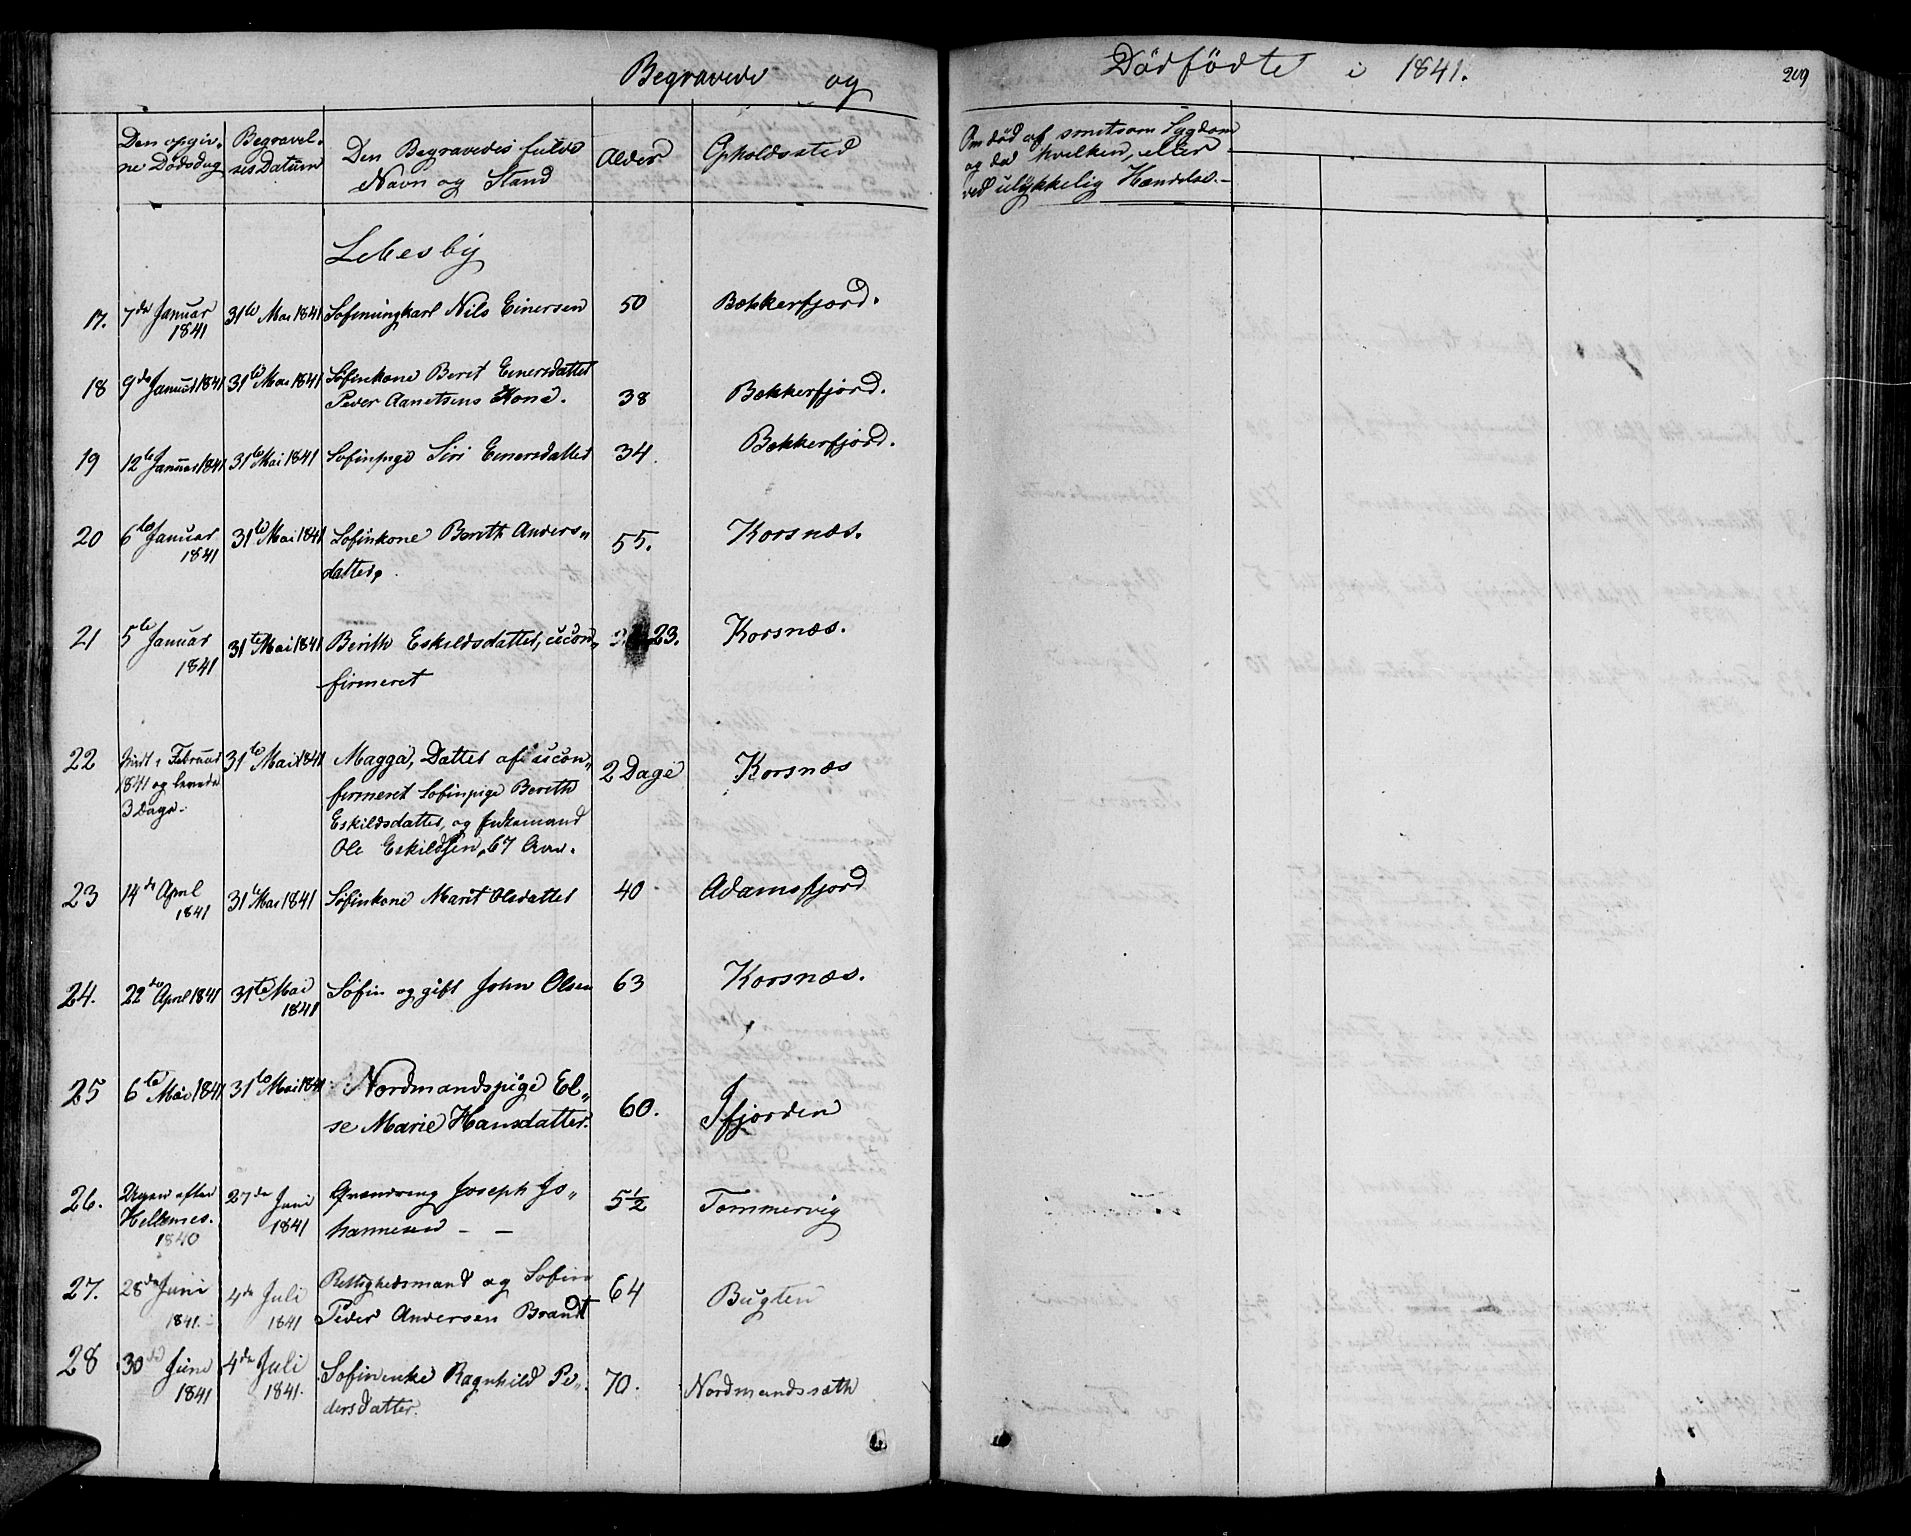 Begravede og
Dödfödte i 1841.
209
Den opgiv-
ne Dödsdag
Begravel-
ses Datum
Den Begravedes fulde
Navn og Stand
Alder
Opholdssted
Om död af smitsom Sygdom
og da hvilken, eller
ved ulykkelig Hændelse.-
Lebesby
17. 7de Januar 1841 31te Mai 1841 Söfinungkarl Nils Einersen 50 Bekkerfjord.
18 9de Januar 1841 31te Mai 1841 Söfinkone Berit Einersdatter
Peder Kone. 38 Bekkerfjord.
19 12te Januar 1841 31te Mai 1841 Söfinpige Siri Einersdatter 34 Bekkerfjord.
20 6te Januar 1841 31te Mai 1841 Söfinkone Berith Anders-
datter. 55. Korsnæs.
21 5te Januar 1841 31te Mai 1841 Berith Eskildsdatter, ucon-
firmeret 23. Korsnæs.
22 födt i Februar
1841 og levede
3 Dage.
31te Mai 1841 Magga, Datter af ucon-
firmeret Söfinpige Berith
Eskildsdatter, og
Ole Eskildsen, 67 Aar. 2 Dage Korsnæs
23 14de April 1841 31te Mai 1841 Söfinkone Marit Olsdatter 40 Adamsfjord
24. 22de April 1841 31te Mai 1841 Söfin og gift John Olsen 63 Korsnæs.
25 6te Mai 1841 31te Mai 1841 Nordmandspige El-
se Marie Hansdatter. 60. Ifjorden
26. Ugen efter
Hellemes.
1840
27de Juni 1841 Qvændreng Joseph Jo-
hannesen - - 5½ Tommervig
27. 28de Juni 1841. 4de Juli 1841 Rettighedsmand og Söfin
Peder Andersen Brandt 64 Bugten
28 30de Juni 1841 4de Juli 1841. Söfinenke Ragnhild Pe-
dersdatter. 70. Nordmandssæth